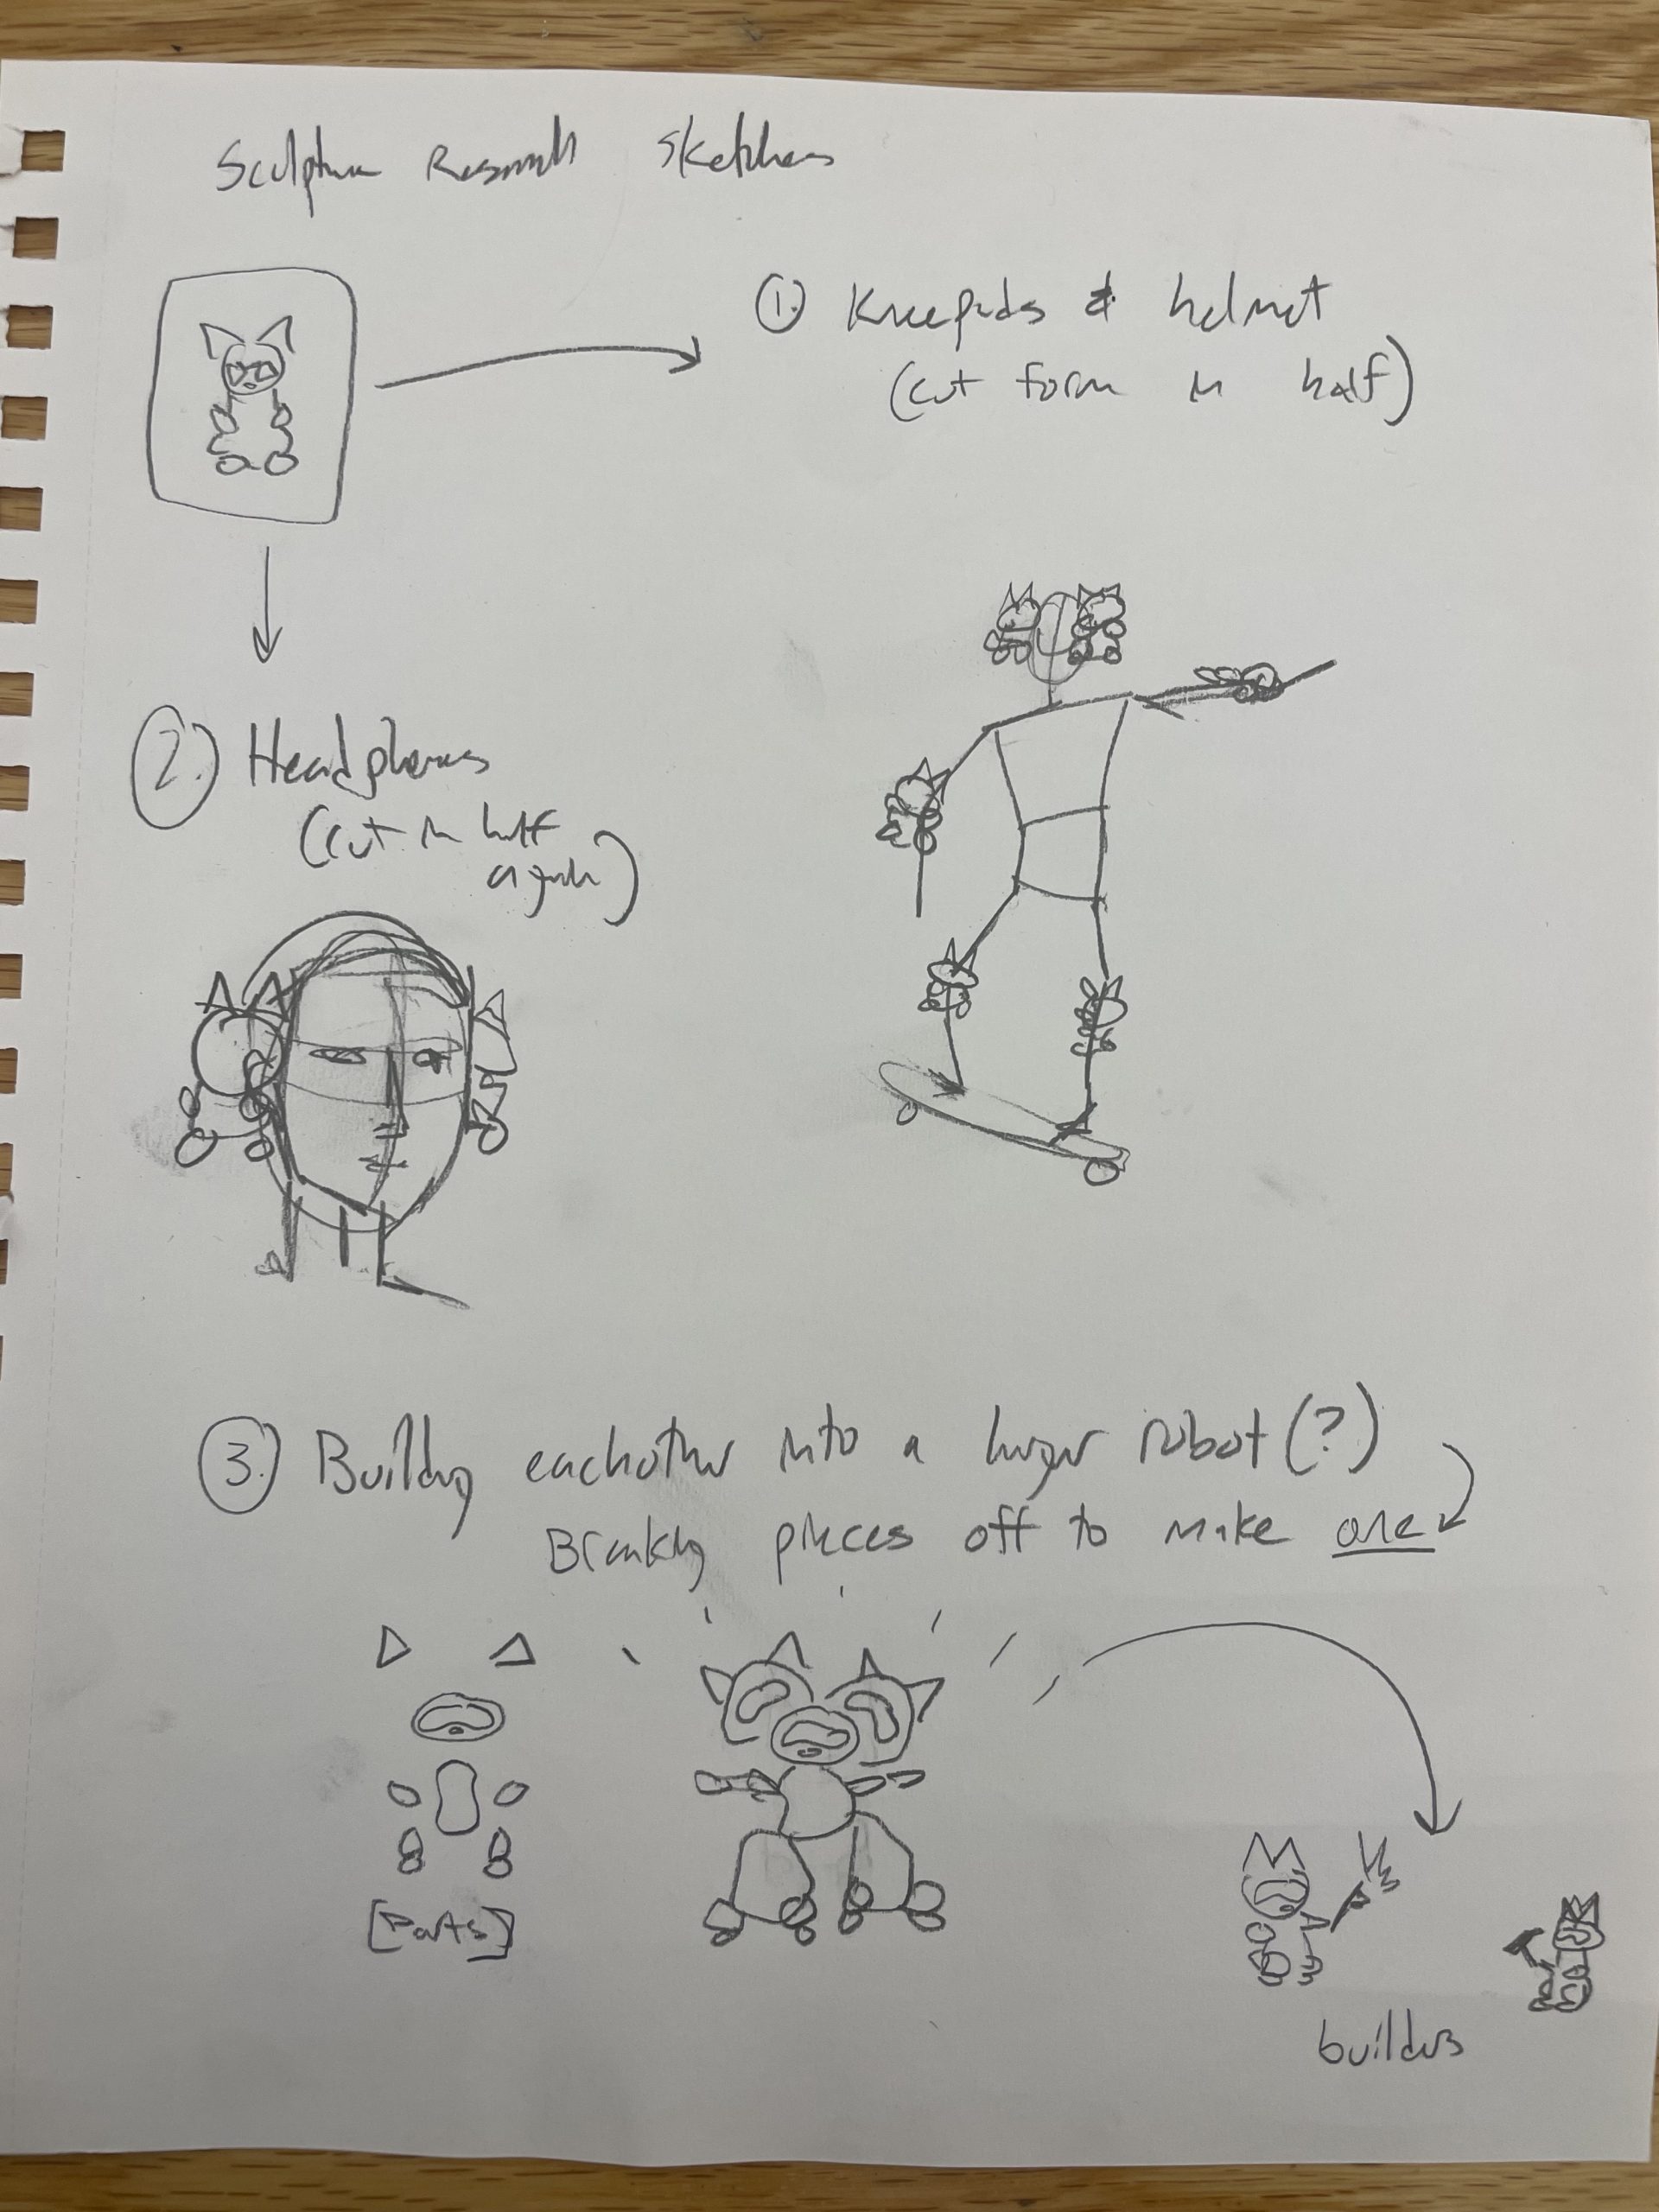 Sculpture Research Sketches
1. Kneepads & helmet
(cut form in half)
2. Headphones
(cut in half
again)
3. Building eachother into a larger robot (?)
Breaking pieces off to make one
[Parts]
builders